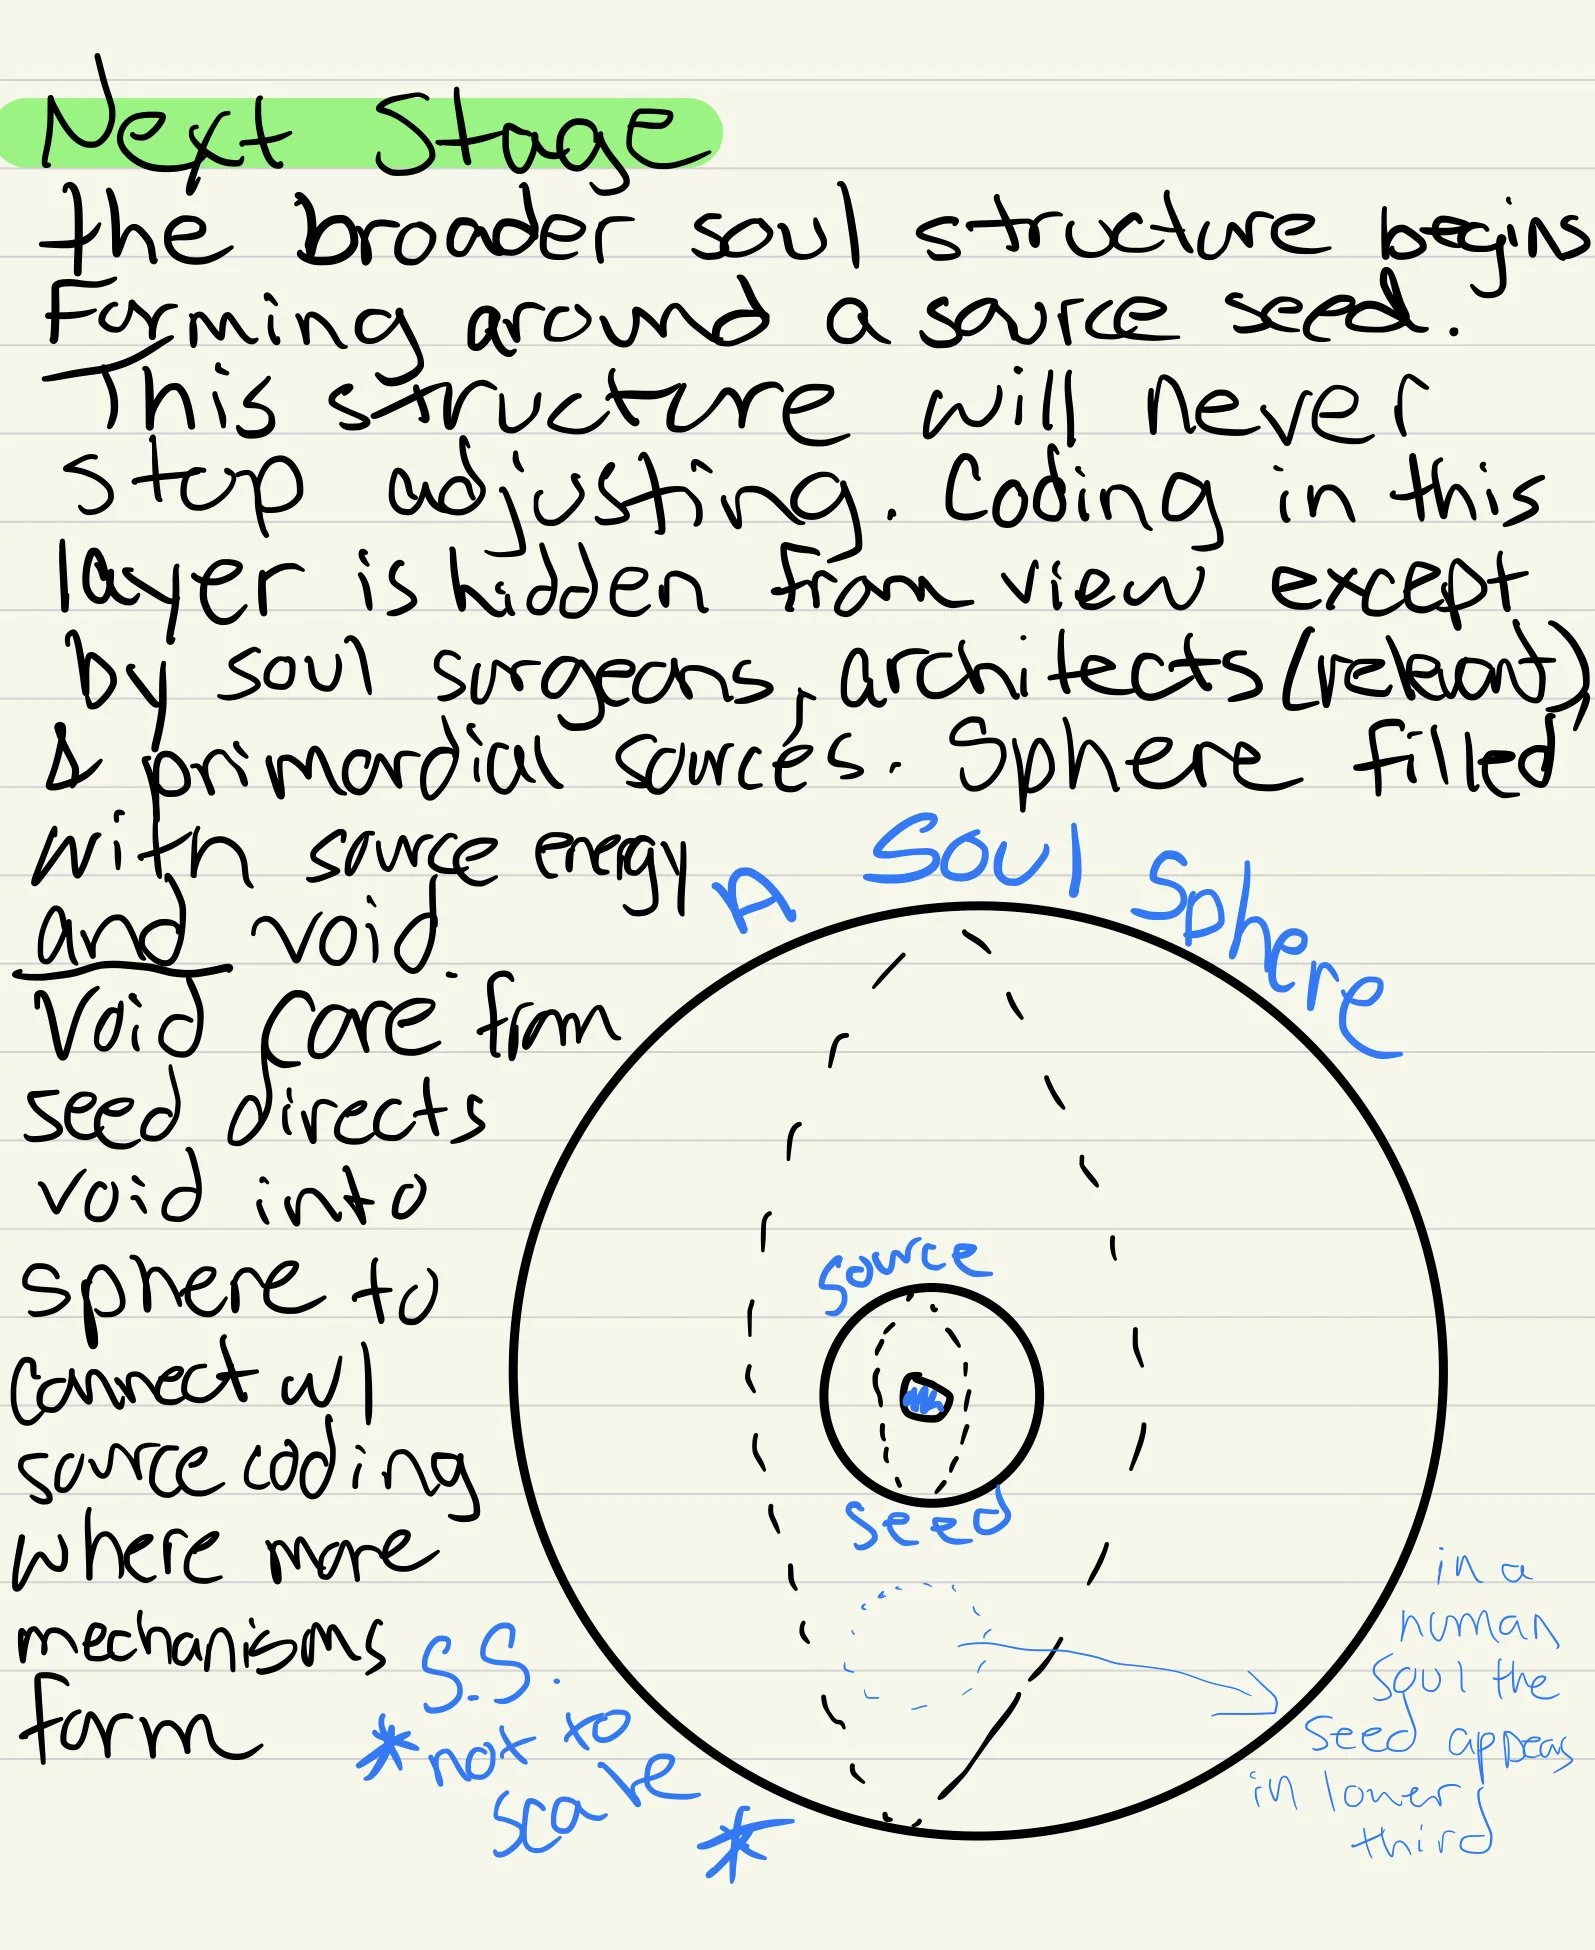 Next Stage
the broader soul structure begins
Forming around a source seed.
This structure will never
stop adjusting. Coding in this
layer is hidden from view except
by soul surgeons, architects (relevant),
& primordial sources. Sphere filled
with source energy
and void.
Void core from
seed directs
void into
sphere to
connect w/
source coding
where more
mechanisms
form
A Soul Sphere
Source
Seed
S.S.
*not to
scale*
in a
human
soul the
seed appears
in lower
third